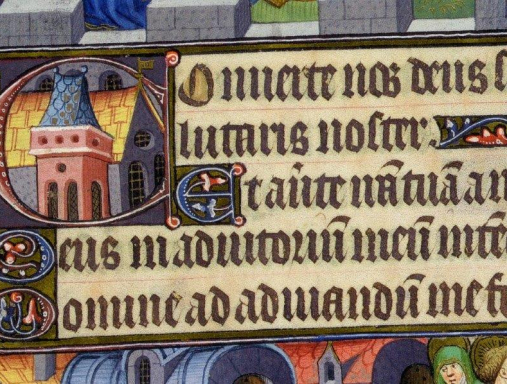 Onuerte nos deus s
lutaris noster.
Et auerte irā tuā a n
eus in adiutoriū meū inte
omine ad adiuuandū me fe